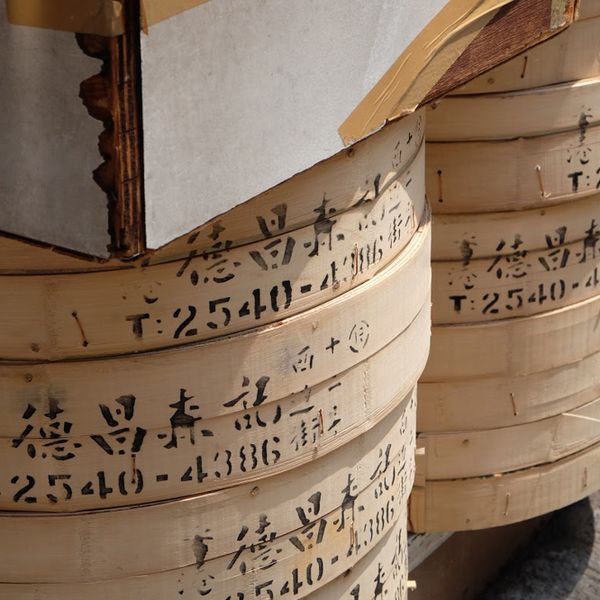 德昌森記
T:2540-4386
西十
德昌森記
2540-4386
德昌森記
2540-4386
德昌森
T:2540-4